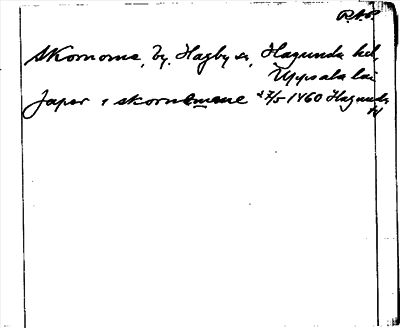 R.A.P.
Skornome, by, Hagby sn, Hagunda hd,
Uppsala län
Japer i skornemene 2/5 1460 Hagunda